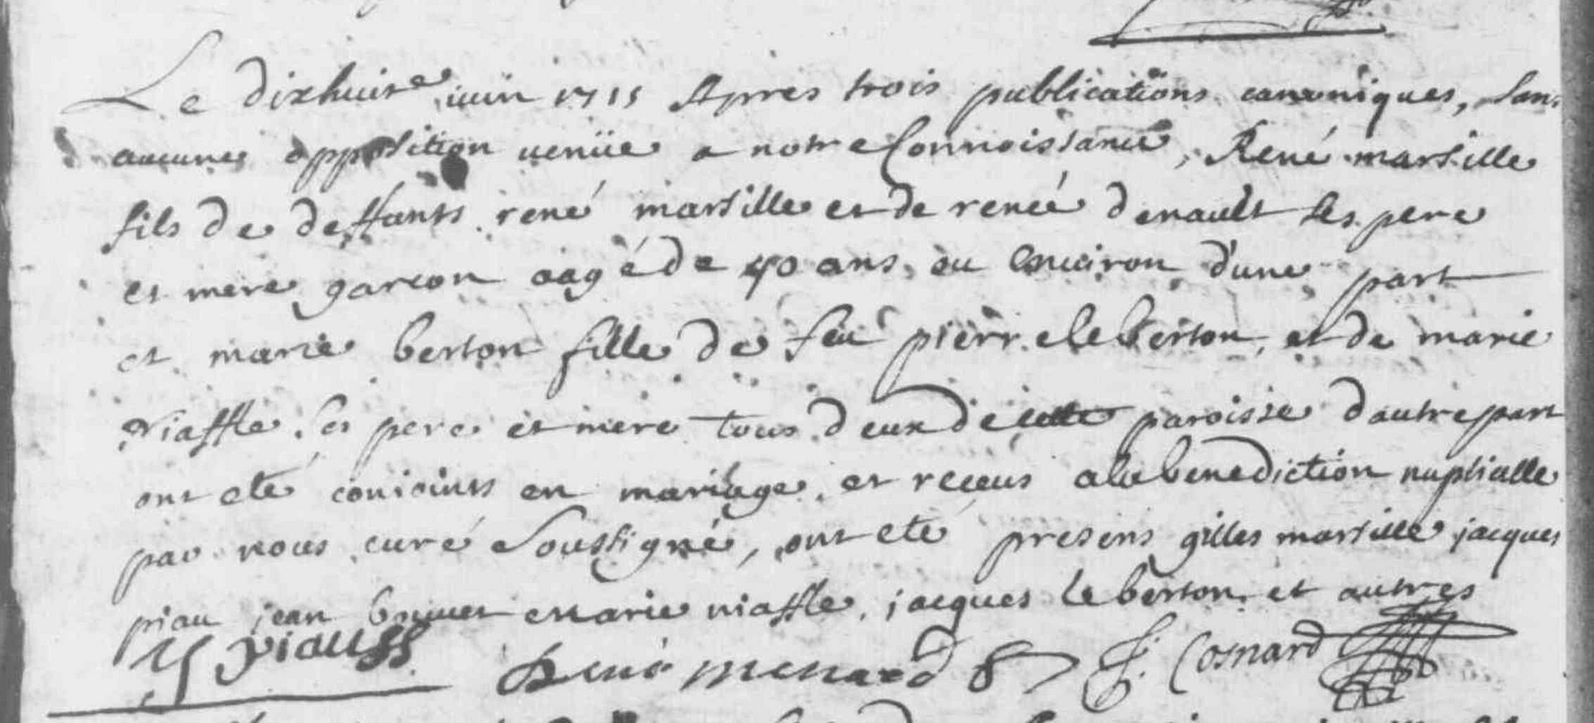 Le dixhuite juin 1715 Apres trois publications canoniques, sans
aucune opposition venüe a notre Connoissance, René marsille
fils de deffants rené marsille et de renée denault ses pere
et mere garçon aagé de 40 ans ou environ d'une part
et marie berton fille de feu pierre le berton, et de marie
niaffle ses pere et mere tous deux de cette paroisse d'autre part
ont eté conioints en mariage, et receus a la benediction nuptialle
par nous curé Soussigné, ont eté presens gilles marsille jacques
piau jean marie niaffle, jacques le berton, et autres
René menard J: Cosnard